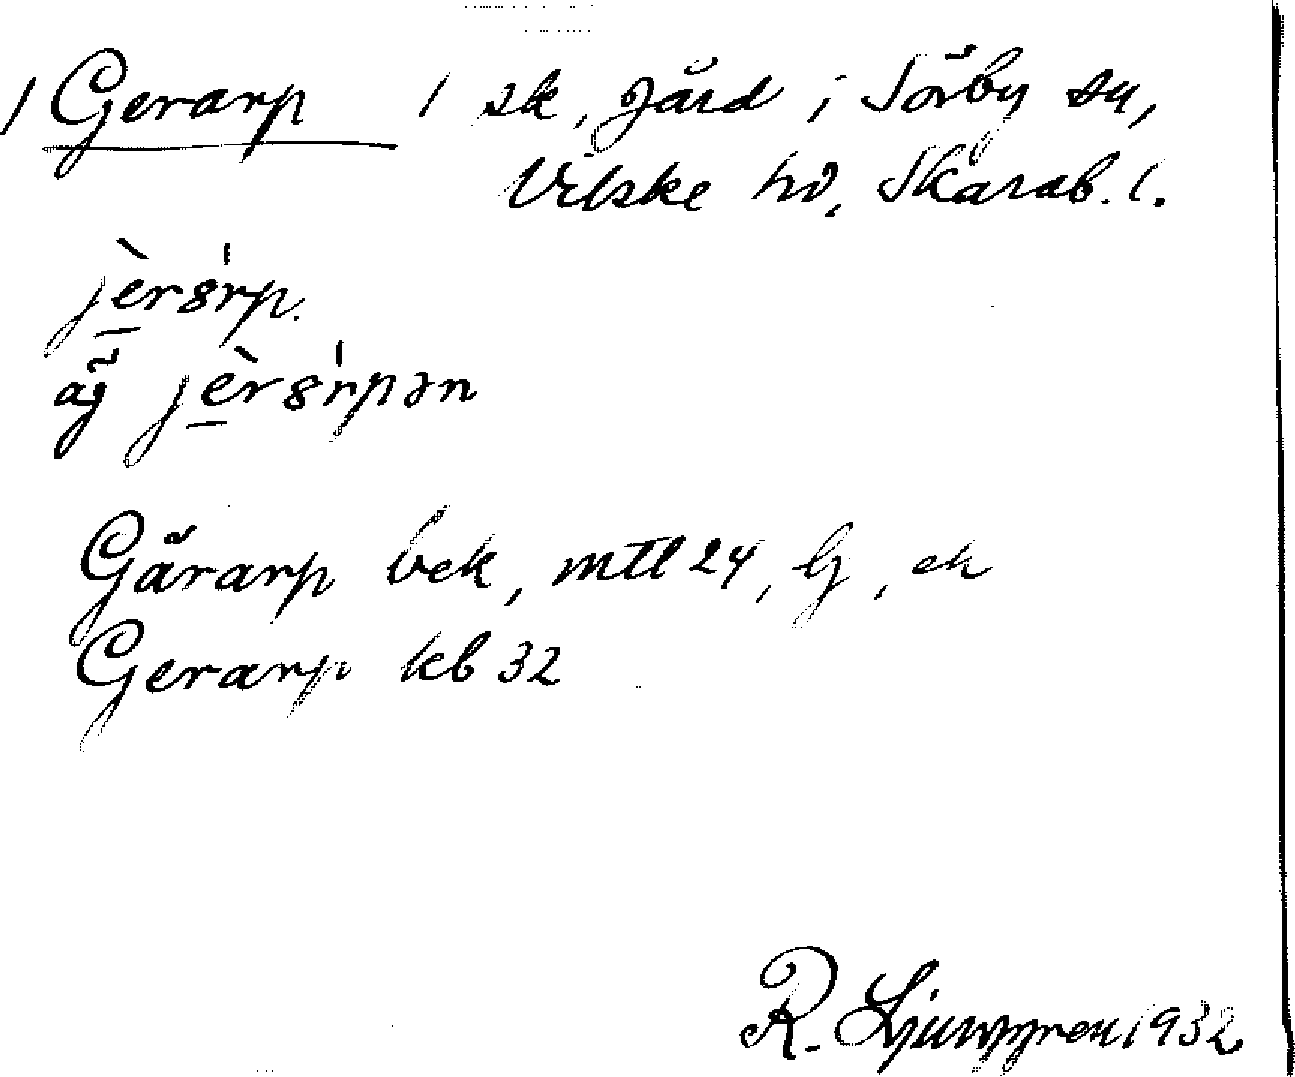 / Gerarp / sk, gård i Sörby sn,
Vilske hd, Skarab. l.
jèrsŕp.
jèrsŕpən
Gärarp bek, mtl 24, G, ek
Gerarp kb 32
R. Ljunggren 1932